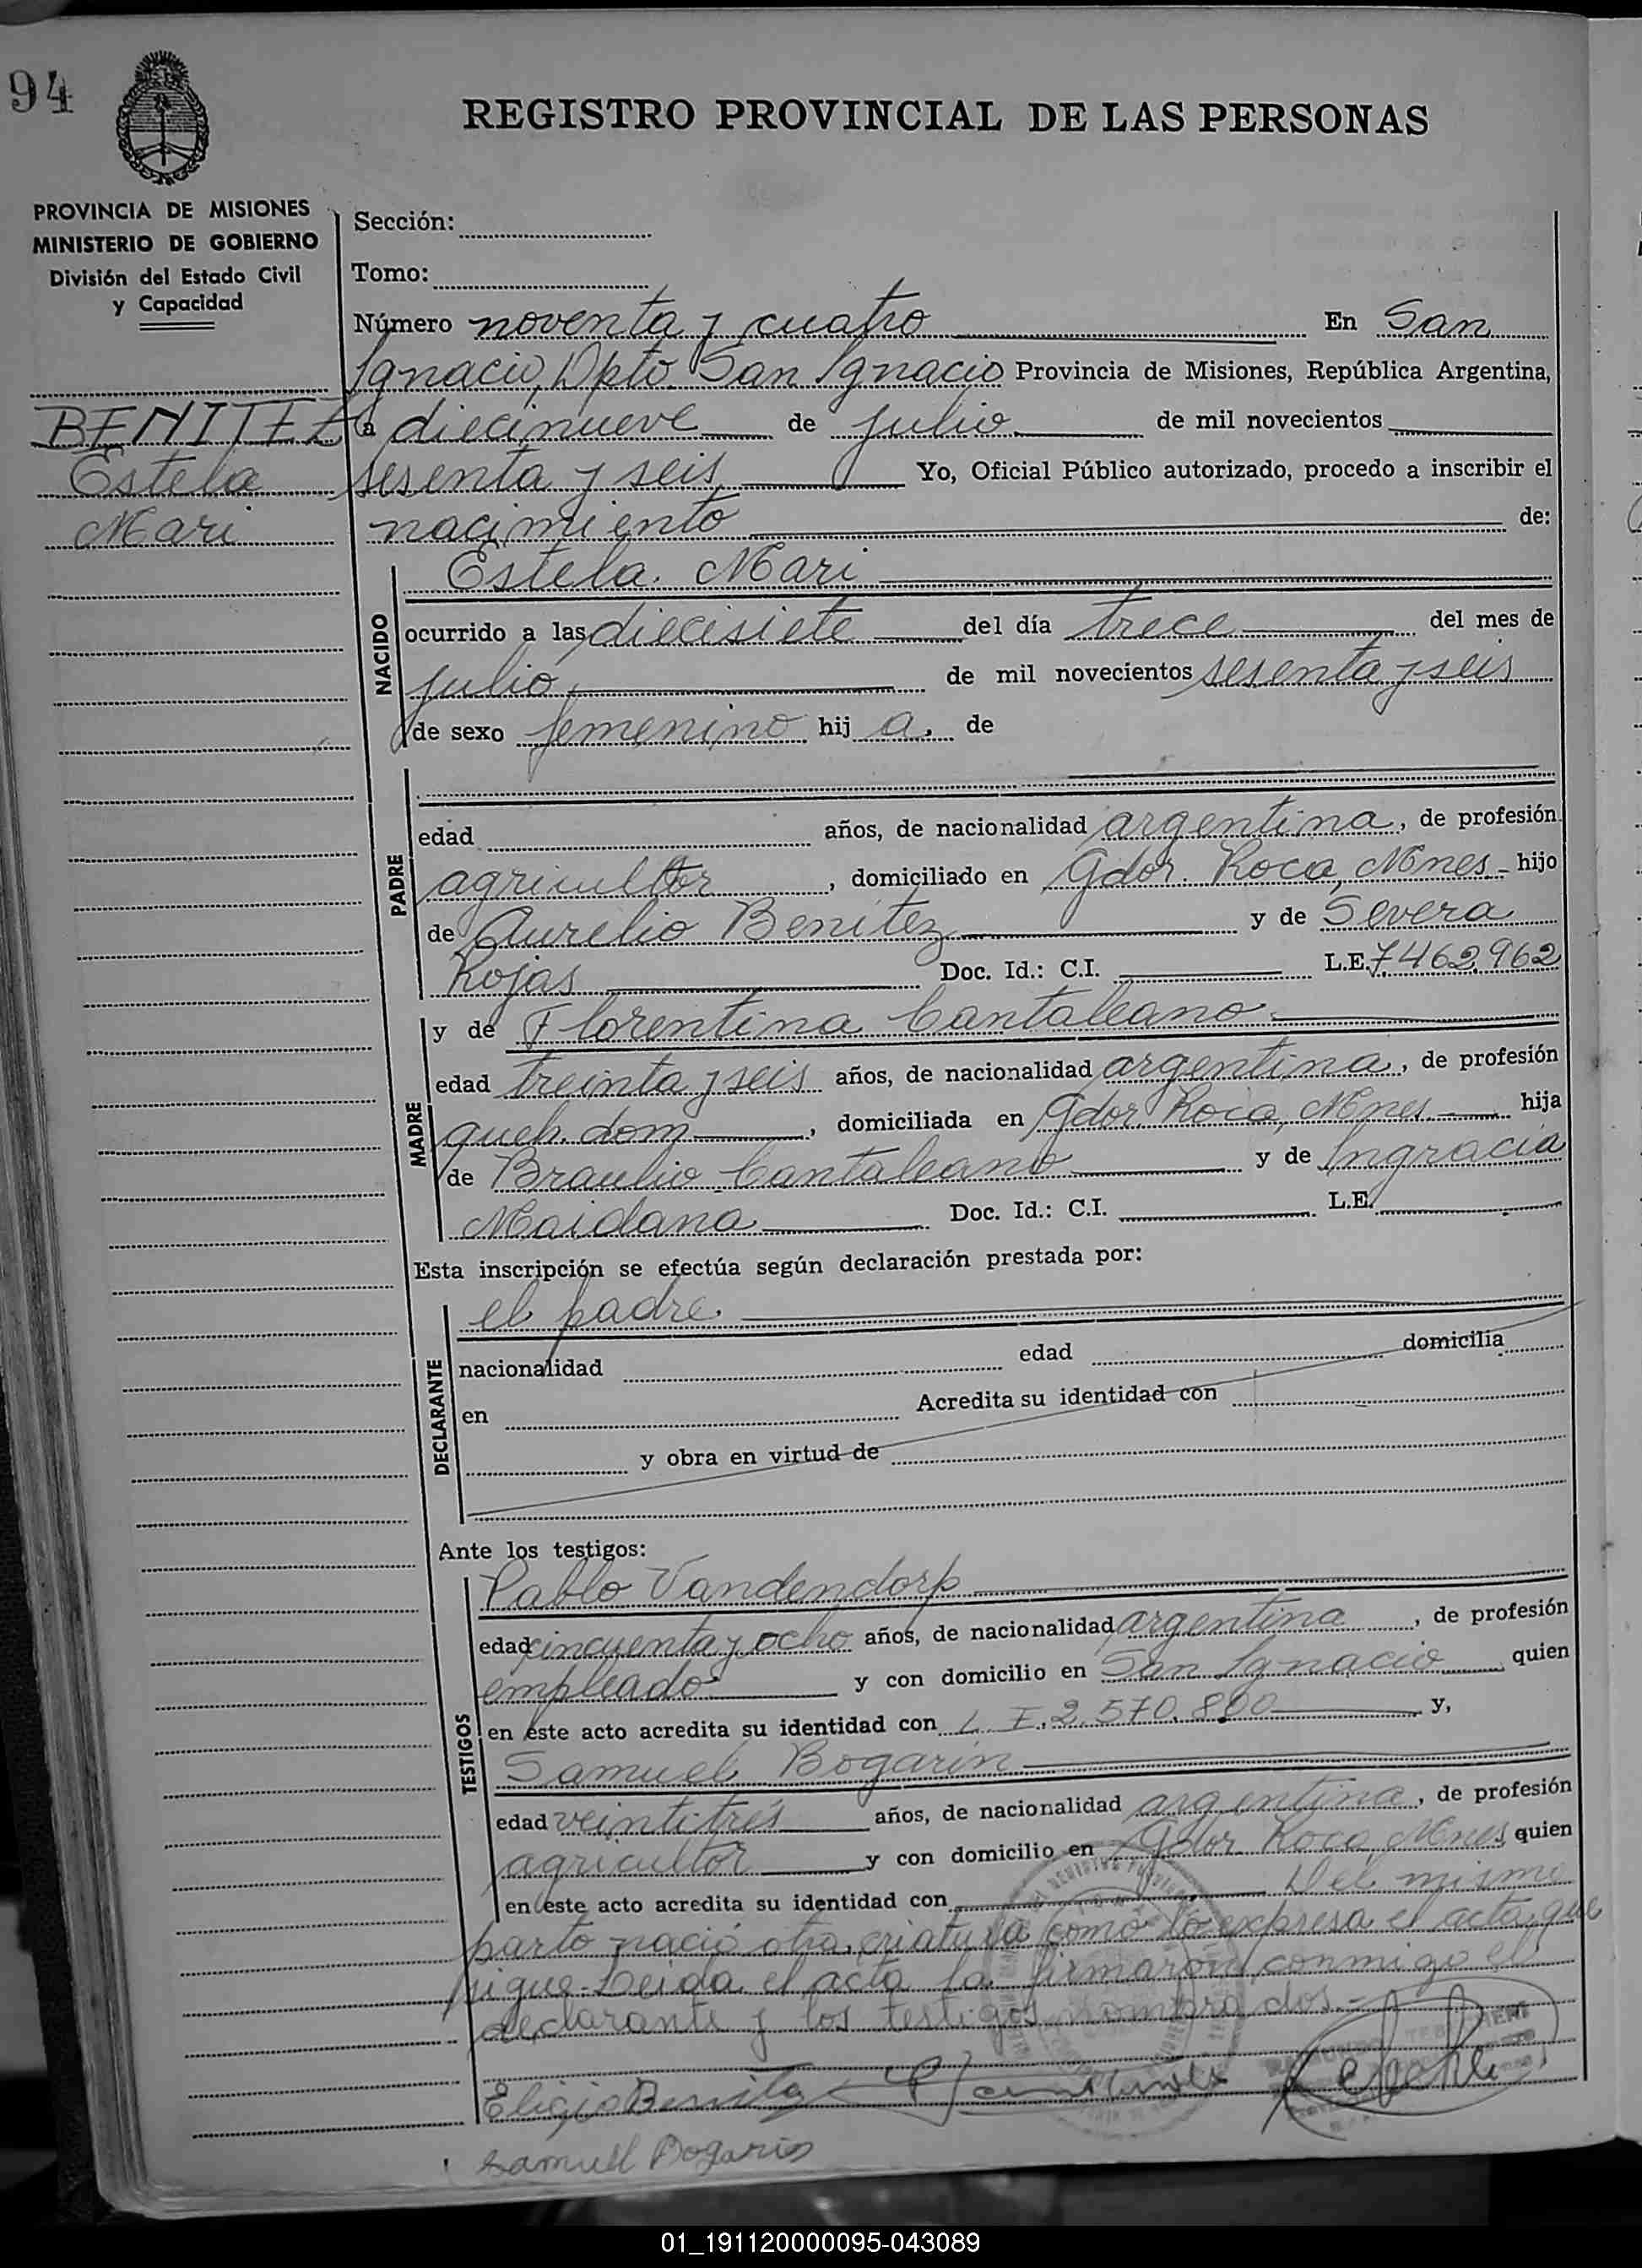 94
REGISTRO PROVINCIAL DE LAS PERSONAS
PROVINCIA DE MISIONES
MINISTERIO DE GOBIERNO
División del Estado Civil
y Capacidad
BENITEZ
Estela
Mari
Sección:
Tomo:
Número noventa y cuatro En San
Ignacio, Dpto. San Ignacio Provincia de Misiones, República Argentina,
a diecinueve de julio de mil novecientos
sesenta y seis Yo, Oficial Público autorizado, procedo a inscribir el
nacimiento de:
Estela Mari
NACIDO
ocurrido a las diecisiete del día trece del mes de
julio de mil novecientos sesenta y seis
de sexo femenino hij a. de
PADRE
edad años, de nacionalidad argentina, de profesión
agricultor, domiciliado en Gdor. Roca, Mnes.- hijo
de Aurelio Benítez y de Severa
Rojas Doc. Id.: C.I. L.E. 7462962
MADRE
y de Florentina Cantaleano
edad treinta y seis años, de nacionalidad argentina, de profesión
queh. dom., domiciliada en Gdor. Roca, Mnes. hija
de Braulio Cantaleano y de Ingracia
Maidana Doc. Id.: C.I. L.E.
Esta inscripción se efectúa según declaración prestada por:
DECLARANTE
el padre.
nacionalidad edad domicilia
en Acredita su identidad con
y obra en virtud de
Ante los testigos:
TESTIGOS
Pablo Vandendorp
edad cincuenta y ocho años, de nacionalidad argentina, de profesión
empleado y con domicilio en San Ignacio quien
en este acto acredita su identidad con 2.570.800 y,
Samuel Bogarin
edad veintitrés años, de nacionalidad argentina, de profesión
agricultor y con domicilio en Gdor. Roca, Mnes. quien
en este acto acredita su identidad con Del mismo
parto nació otra criatura como lo expresa el acta que
sigue. Leida el acta la firmaron conmigo el
declarante y los testigos nombrados.-
Eligio Benitez
Samuel Bogarin
01_191120000095-043089